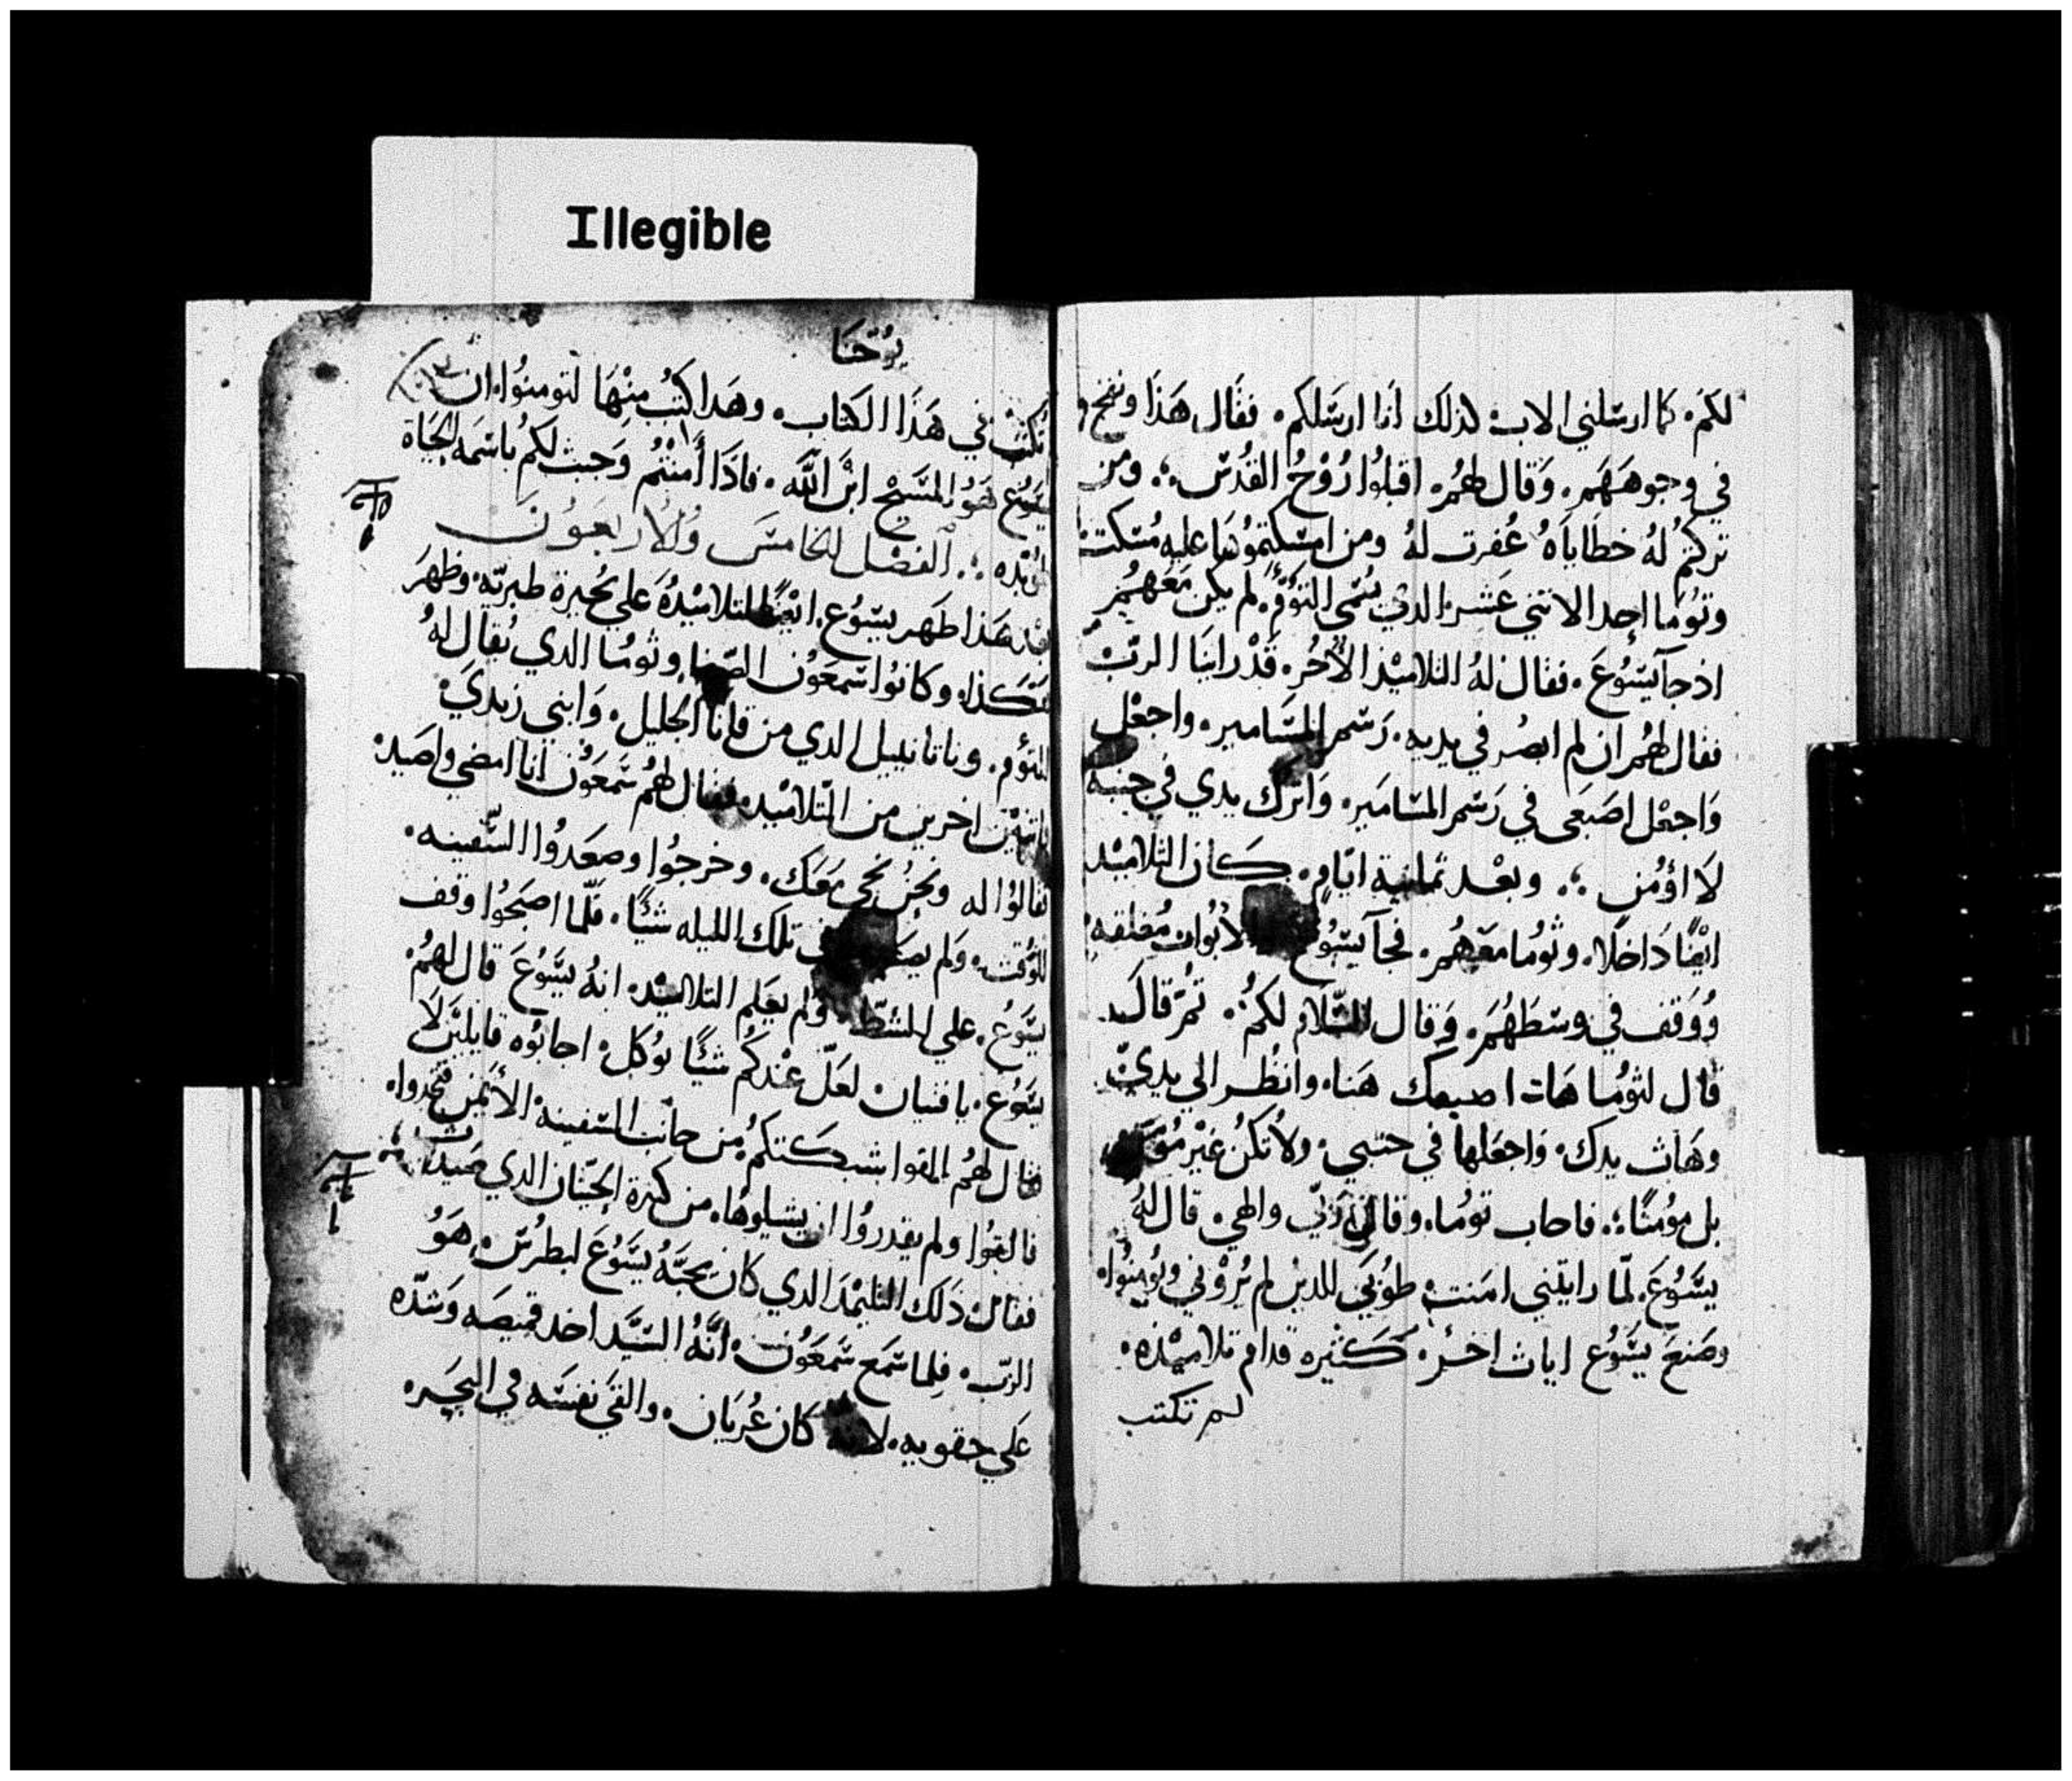 Illegible
لكم. كما ارسلني الاب كذلك انا ارسلكم. فقال هذا ونفخ
في وجوههم. وقال لهم. اقبلوا روح القدس؛ ومن
تركتم له خطاياه غفرت له ومن امسكتموها عليه مسكت
وتوما احد الاثني عشر الذي يسمى التؤم. لم يكن معهم
اذ جآ يسوع. فقال له التلاميذ الاخر. قد راينا الرب
فقال لهم ان لم ابصر في يديه. رسم المسامير. واجعل
واجعل اصبعى في رسم المسامير. واترك يدي في جنبه
لا اؤمن ؛. وبعد ثمانية ايام. كان التلاميد
ايضًا داخلا. وثوما معهم. فجآ يسوع الابواب مغلقه
ووقف في وسطهم. وقال السلام لكم. تم قال
قال لثوما هات اصبعك هنا. وانظر الي يدي
وهات يدك. واجعلها في جنبي. ولا تكن غير
بل مؤمنًا؛. فاجاب توما. وقال ربي والهي. قال له
يسوع. لما رايتني امنت طوبى للدين لم يروني ويومنوا.
وصنع يسوع ايات اخر. كثيره قدام تلاميذه.
لم تكتب
يوحنا
تكتب في هذا الكتاب. وهدا كتب منها لتومنوا ان
يسوع هو المسيح ابن الله. فادا أمنتم وجبت لكم باسمه الحياة
الفصل الخامس والاربعون
هدا ظهر يسوع. ايضًا لتلاميذه على بحيرة طبريه. وظهر
هكذا. وكانوا سمعون الصفا وثوما الدي يقال له
التؤم. وناتانييل الدي من قانا الجليل. وابني زبدي.
واتنين اخرين من التلاميد. فقال لهم سمعون انا امضي واصيد
فقالوا له ونحن نجي معك. وخرجوا وصعدوا السفينه.
للوقت. ولم تلك الليله شيًا. فلما اصبحوا وقف
يسوع. علي الشط ولم يعلم التلاميد. انه يسوع قال لهم
يسوع. يا فتيان لعل عندكم شيًا يوكل. اجابوه قايلين لا
فقال لهم القوا شبكتكم من جانب السفينه الأيمن فتجدوا.
فالقوا ولم يقدروا ان يشيلوها. من كثرة الحيتان الدي صيدت
فقال دلك التلميد الدي كان يحبه يسوع لبطرس. هو
الرب. فلما سمع سمعون. انه السيد اخد قميصه وشده
علي حقويه. لانه كان عريان. والقى نفسه في البحيره